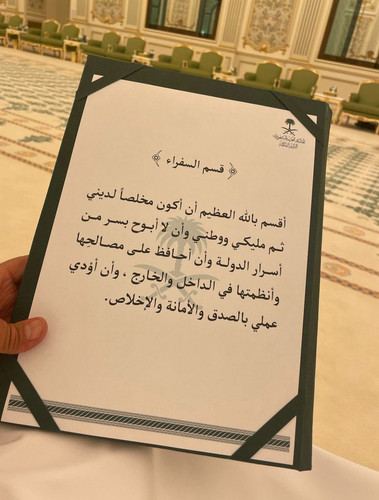 قسم السفراء
أقسم بالله العظيم أن أكون مخلصاً لديني
ثم مليكي ووطني وأن لا أبوح بسر من
أسرار الدولة وأن أحافظ على مصالحها
وأنظمتها في الداخل والخارج ، وأن أؤدي
عملي بالصدق والأمانة والإخلاص.